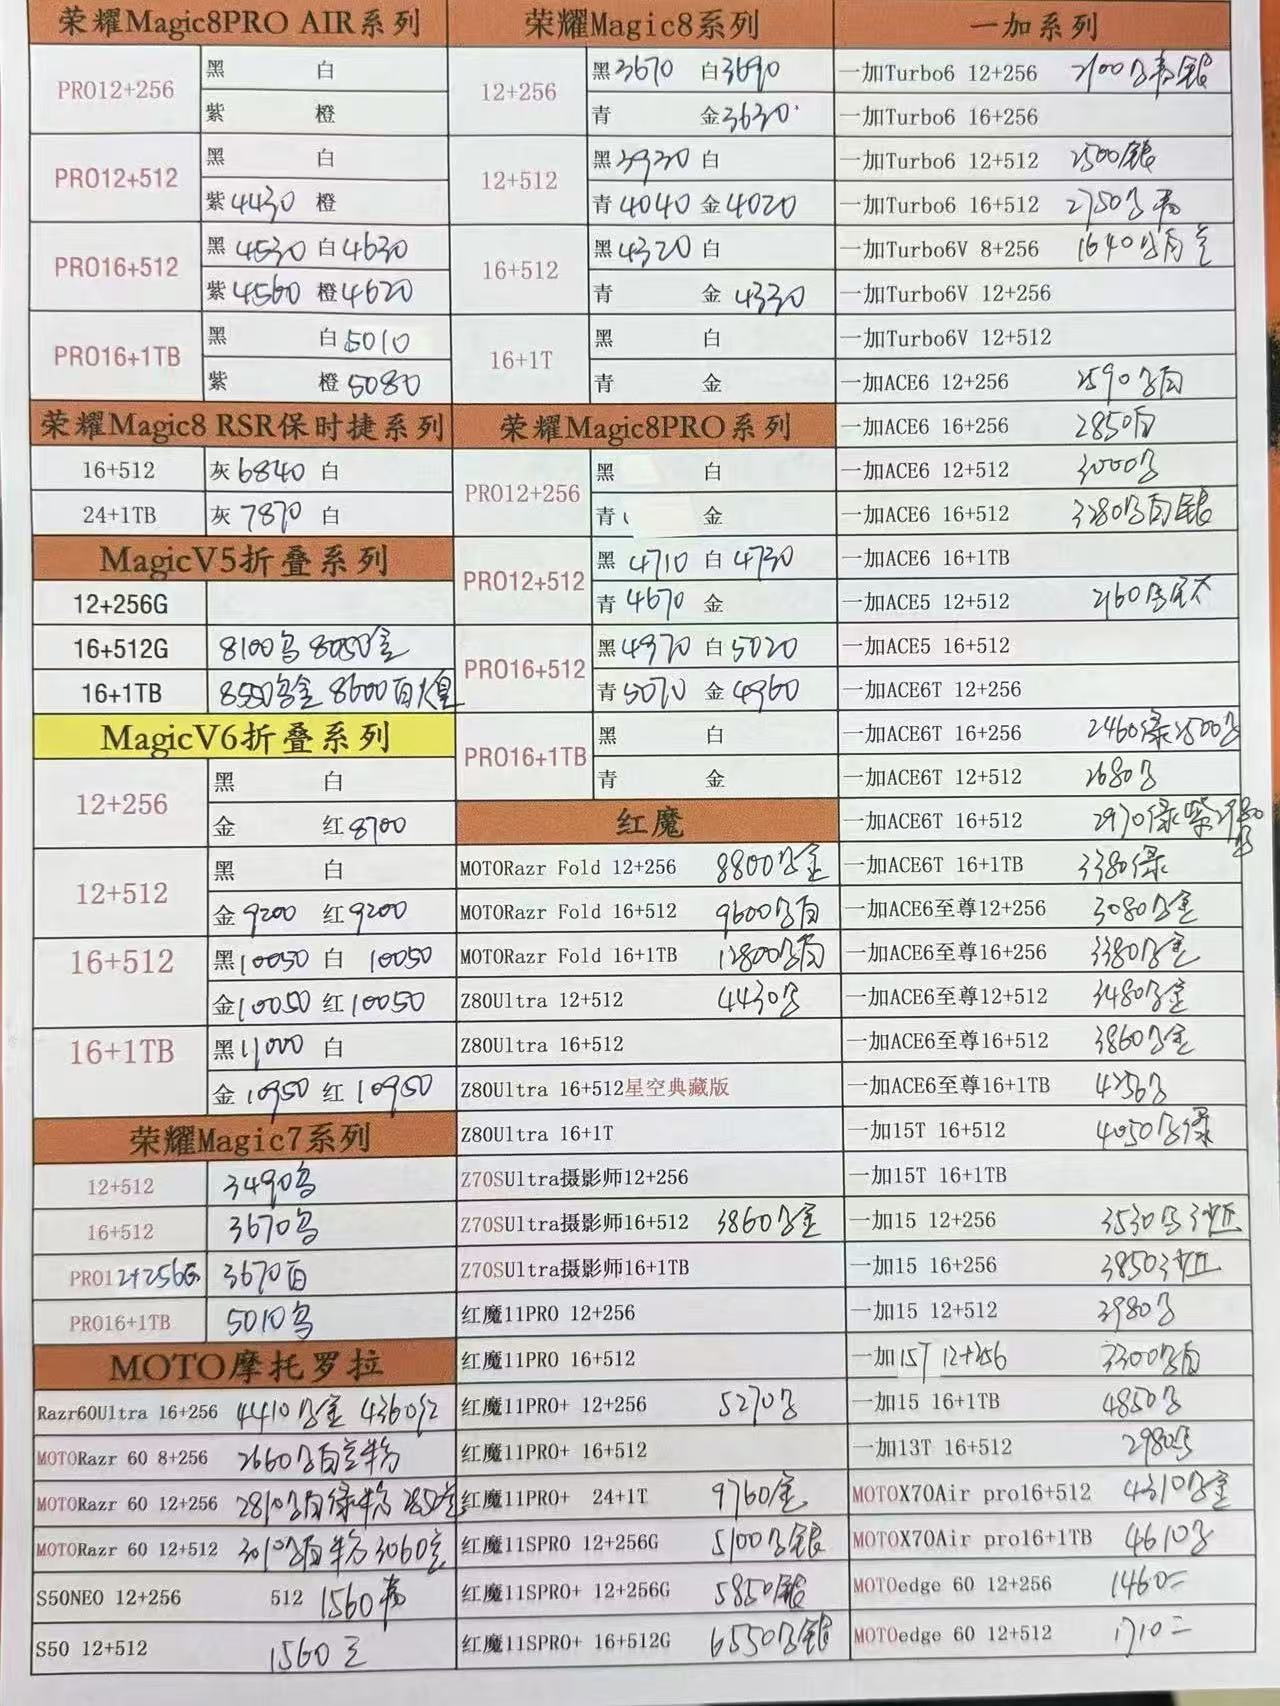 荣耀Magic8PRO AIR系列
PRO12+256
黑 白
紫 橙
PRO12+512
黑 白
紫4430 橙
PRO16+512
黑4530 白4630
紫4560 橙4620
PRO16+1TB
黑 白5010
紫 橙5080
荣耀Magic8 RSR保时捷系列
16+512 灰6840 白
24+1TB 灰7870 白
MagicV5折叠系列
12+256G
16+512G 8100乌 8050金
16+1TB 8550乌金 8600白
MagicV6折叠系列
12+256
黑 白
金 红8700
12+512
黑 白
金9200 红9200
16+512
黑10050 白10050
金10050 红10050
16+1TB
黑11000 白
金10950 红10950
荣耀Magic7系列
12+512 3490乌
16+512 3670乌
PRO12+256G 3670白
PRO16+1TB 5010乌
MOTO摩托罗拉
Razr60Ultra 16+256 4410乌金 4360红
MOTORazr 60 8+256 2660乌白兰粉
MOTORazr 60 12+256 2810乌白绿粉
MOTORazr 60 12+512 3010乌白粉 3060兰
S50NEO 12+256 512 1560
S50 12+512 1560兰
荣耀Magic8系列
12+256
黑3670 白3690
青 金3630
12+512
黑3930 白
青4040 金4020
16+512
黑4320 白
青 金4330
16+1T
黑 白
青 金
荣耀Magic8PRO系列
PRO12+256
黑 白
青 金
PRO12+512
黑4710 白4730
青4670 金
PRO16+512
黑4970 白5020
青5070 金4960
PRO16+1TB
黑 白
青 金
红魔
MOTORazr Fold 12+256 8800乌金
MOTORazr Fold 16+512 9600乌白
MOTORazr Fold 16+1TB 12800乌白
Z80Ultra 12+512 4430乌
Z80Ultra 16+512
Z80Ultra 16+512星空典藏版
Z80Ultra 16+1T
Z70SUltra摄影师12+256
Z70SUltra摄影师16+512 3860乌金
Z70SUltra摄影师16+1TB
红魔11PRO 12+256
红魔11PRO 16+512
红魔11PRO+ 12+256 5270乌
红魔11PRO+ 16+512
红魔11PRO+ 24+1T 9760金
红魔11SPRO 12+256G 5100乌银
红魔11SPRO+ 12+256G 5850银
红魔11SPRO+ 16+512G 6550乌银
一加系列
一加Turbo6 12+256 2100乌青银
一加Turbo6 16+256
一加Turbo6 12+512 2500银
一加Turbo6 16+512 2750乌青
一加Turbo6V 8+256 1640乌白兰
一加Turbo6V 12+256
一加Turbo6V 12+512
一加ACE6 12+256 2590乌白
一加ACE6 16+256 2850白
一加ACE6 12+512 3000乌
一加ACE6 16+512 3280乌白银
一加ACE6 16+1TB
一加ACE5 12+512 2160
一加ACE5 16+512
一加ACE6T 12+256
一加ACE6T 16+256 2460绿2500乌
一加ACE6T 12+512 2680乌
一加ACE6T 16+512 2970绿紫2980乌
一加ACE6T 16+1TB 3380绿
一加ACE6至尊12+256 3080乌金
一加ACE6至尊16+256 3380乌金
一加ACE6至尊12+512 3480乌金
一加ACE6至尊16+512 3860乌金
一加ACE6至尊16+1TB 4256乌
一加15T 16+512 4050乌绿
一加15T 16+1TB
一加15 12+256 3530乌
一加15 16+256 3850
一加15 12+512 3980乌
一加15T 12+256 3300乌白
一加15 16+1TB 4850乌
一加13T 16+512 2980乌
MOTOX70Air pro16+512 4310乌金
MOTOX70Air pro16+1TB 4610乌
MOTOedge 60 12+256 1460兰
MOTOedge 60 12+512 1710兰